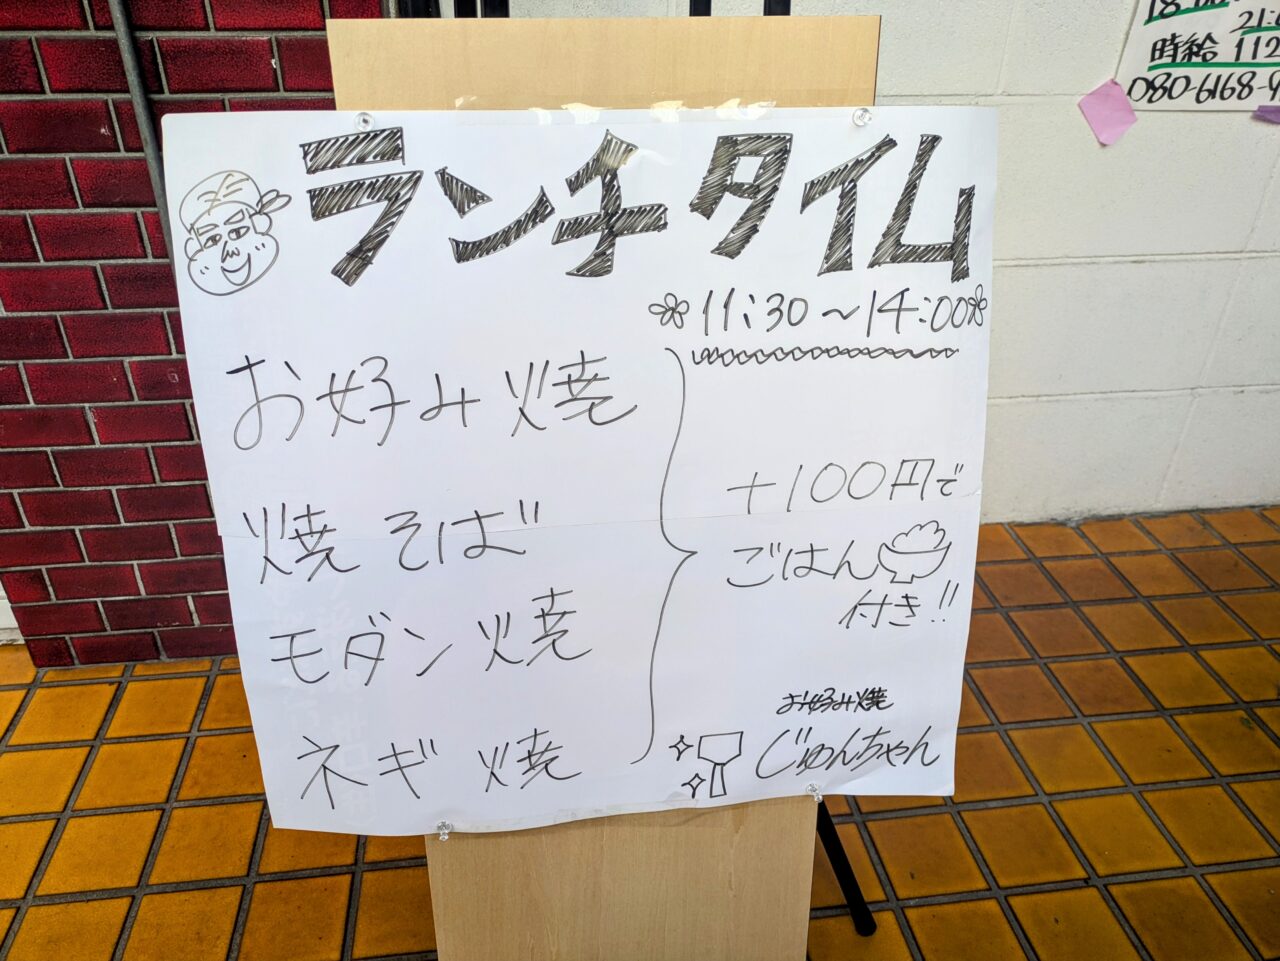 ランチタイム
11:30〜14:00
お好み焼
焼そば
モダン焼
ネギ焼
+100円で
ごはん
付き!!
お好み焼
じゅんちゃん
時給 112
080-6168-9